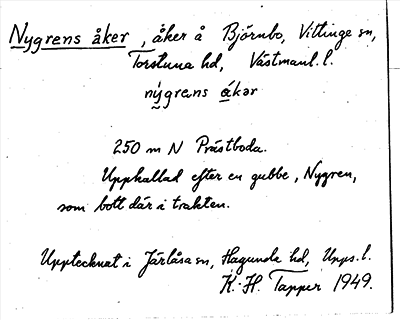 Nygrens åker, åker å Björnbo, Vittinge sn,
Torstuna hd, Västmanl. l.
nỳgrens ákər
250 m N Prästboda.
Uppkallad efter en gubbe, Nygren,
som bott där i trakten.
Upptecknat i Järlåsa sn, Hagunda hd, Upps. l.
K. H. Tapper 1949.